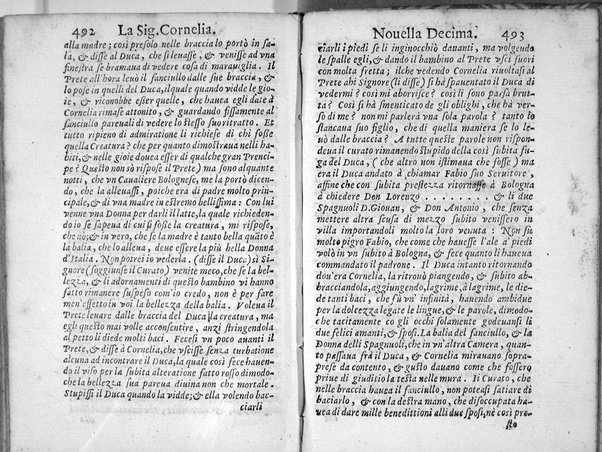 492 La Sig. Cornelia.
alla madre; così presolo nelle braccia lo portò in sa-
la, & disse al Duca, che si leuasse, & venisse ad vna
finestra se bramaua di vedere cosa di marauiglia. Il
Prete all'hora leuò il fanciullo dalle sue braccia, &
lo pose in quelli del Duca, il quale quando vidde le gio-
ie, & riconobbe esser quelle, che hauea egli date à
Cornelia rimase attonito, & guardando fissamente al
fanciullo parеuali di vedere lo stesso suo ritratto. Et
tutto ripieno di admiratione li richiese di chi fosse
quella Creatura? che per quanto dimostraua nelli ha-
biti, & nelle gioie douea esser di qualche gran Trenci-
pe? Questo non sò rispose il Prete) ma sono alquante
notti, che vn Caualiere Bolognese, me la portò dicen-
do, che la alleuassi, poiche era di padre molto princi-
pale, & di vna madre in estremo bellissima: Con lui
venne vna Donna per darli il latte, la quale richieden-
do io se sapeua di cui si fosse la creatura, mi rispose,
che nò; & in vero, che se la madre è tanto bella quãto è
la balia, che lo alleua, deue essere la più bella Donna
d'Italia. Non potrei io vederla. (disse il Duca) sì Si-
gnore (soggiunse il Curato) venite meco, che se la bel-
lezza, & li adornamenti di questo bambino vi hanno
fatto rimanere suspeso com'io credo, non è per fare
men'effetto in voi la bellezza della balia. Voleua il
Prete leuare dalle braccia del Duca la creatura, ma
egli questo mai volle acconsentire, anzi stringendola
al petto li diede molti baci. Fecesi vn poco auanti il
Prete, & disse à Cornelia, che vscisse senza turbatione
alcuna ad incontrare il Duca, la quale così fece hauen-
do il viso per la subita alteratione fatto rosso dimodo-
che la bellezza sua pareua diuina non che mortale.
Stupissi il Duca quando la vidde; & ella volendo bac-
ciarli
Nouella Decima. 493
ciarli i piedi se li inginocchiò dauanti, ma volgendo
le spalle egli, & dando il bambino al Prete vscì fuori
con molta fretta; ilche vedendo Cornelia riuoltasi al
Prete ahi Signore (li disse) si hà spauentato il Duca di
vedermi? così mi aborrisce? così li sono parsa brut-
ta? Così si smenticato de gli oblighi, che hà ver-
so di me? non mi parlerà vna sola parola? tanto lo
stancaua suo figlio, che di quella maniera se lo le-
uò dalle braccia? A tutte queste parole non rispon-
deua il curato rimanendo stupido della così subita fu-
ga del Duca, (che altro non istimaua che fosse) ma
era il Duca andato à chiamar Fabio suo Seruitore,
affine che con subita prestezza ritornasse à Bologna
à chiedere Don Lorenzo . . . . . . . . & li due
Spagnuoli D. Giouan, & Don Antonio, che senza
mettere altra scusa di mezzo subito venissero in
villa importandoli molto la loro venuta: Non fù
molto pigro Fabio, che come che hauesse l'ale a' piedi
volò in vn subito à Bologna, & fece quanto li haueua
commandato il padrone. Il Duca intanto ritornando
dou'era Cornelia, la ritrouò piangendo, & subito ab-
bracciandola, aggiungendo, lagrime, à lagrime, le die-
de tanti baci, che fù vn' infinità, hauendo ambidue
per la dolcezza legate le lingue, & le parole, dimodo-
che tacitamente co gli occhi solamente godeuansi li
due felici amanti, & sposi. La balia del fanciullo, & la
Donna delli Spagnuoli, che in vn'altra Camera, quan-
to passana frà il Duca, & Cornelia mirauano sopra-
prese da contento, & gusto dauano come che fossero
priue di giuditio la testa nelle mura. Il Curato, che
nelle braccia hauea il fanciullo, non poteasi satiare di
baciarlo, & con la destra mano, che disoccupata ha-
uea di dare mille benedittioni alli due sposi, nè così pre-
sto